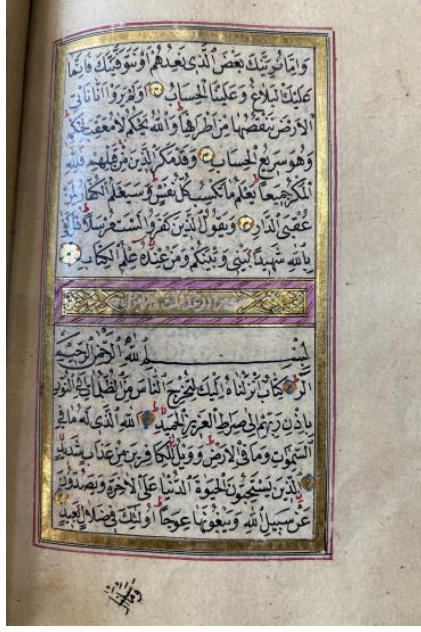 وَاِمَّا نُرِيَنَّكَ بَعْضَ الَّذِى نَعِدُهُمْ اَوْ نَتَوَفَّيَنَّكَ فَاِنَّمَا
عَلَيْكَ الْبَلَاغُ وَعَلَيْنَا الْحِسَابُ اَوَلَمْ يَرَوْا اَنَّا نَأْتِى
الْاَرْضَ نَنْقُصُهَا مِنْ اَطْرَافِهَا وَاللّٰهُ يَحْكُمُ لَا مُعَقِّبَ لِحُكْمِهِ
وَهُوَ سَرِيعُ الْحِسَابِ وَقَدْ مَكَرَ الَّذِينَ مِنْ قَبْلِهِمْ فَلِلّٰهِ
الْمَكْرُ جَمِيعًا يَعْلَمُ مَا تَكْسِبُ كُلُّ نَفْسٍ وَسَيَعْلَمُ الْكُفَّارُ لِمَنْ
عُقْبَى الدَّارِ وَيَقُولُ الَّذِينَ كَفَرُوا لَسْتَ مُرْسَلًا قُلْ كَفٰى
بِاللّٰهِ شَهِيدًا بَيْنِى وَبَيْنَكُمْ وَمَنْ عِنْدَهُ عِلْمُ الْكِتَابِ
بِسْمِ اللّٰهِ الرَّحْمٰنِ الرَّحِيمِ
الٓرٰ كِتَابٌ اَنْزَلْنَاهُ اِلَيْكَ لِتُخْرِجَ النَّاسَ مِنَ الظُّلُمَاتِ اِلَى النُّورِ
بِاِذْنِ رَبِّهِمْ اِلٰى صِرَاطِ الْعَزِيزِ الْحَمِيدِ اَللّٰهِ الَّذِى لَهُ مَا فِى
السَّمٰوَاتِ وَمَا فِى الْاَرْضِ وَوَيْلٌ لِلْكَافِرِينَ مِنْ عَذَابٍ شَدِيدٍ
اَلَّذِينَ يَسْتَحِبُّونَ الْحَيٰوةَ الدُّنْيَا عَلَى الْاٰخِرَةِ وَيَصُدُّونَ
عَنْ سَبِيلِ اللّٰهِ وَيَبْغُونَهَا عِوَجًا اُولٰئِكَ فِى ضَلَالٍ بَعِيدٍ